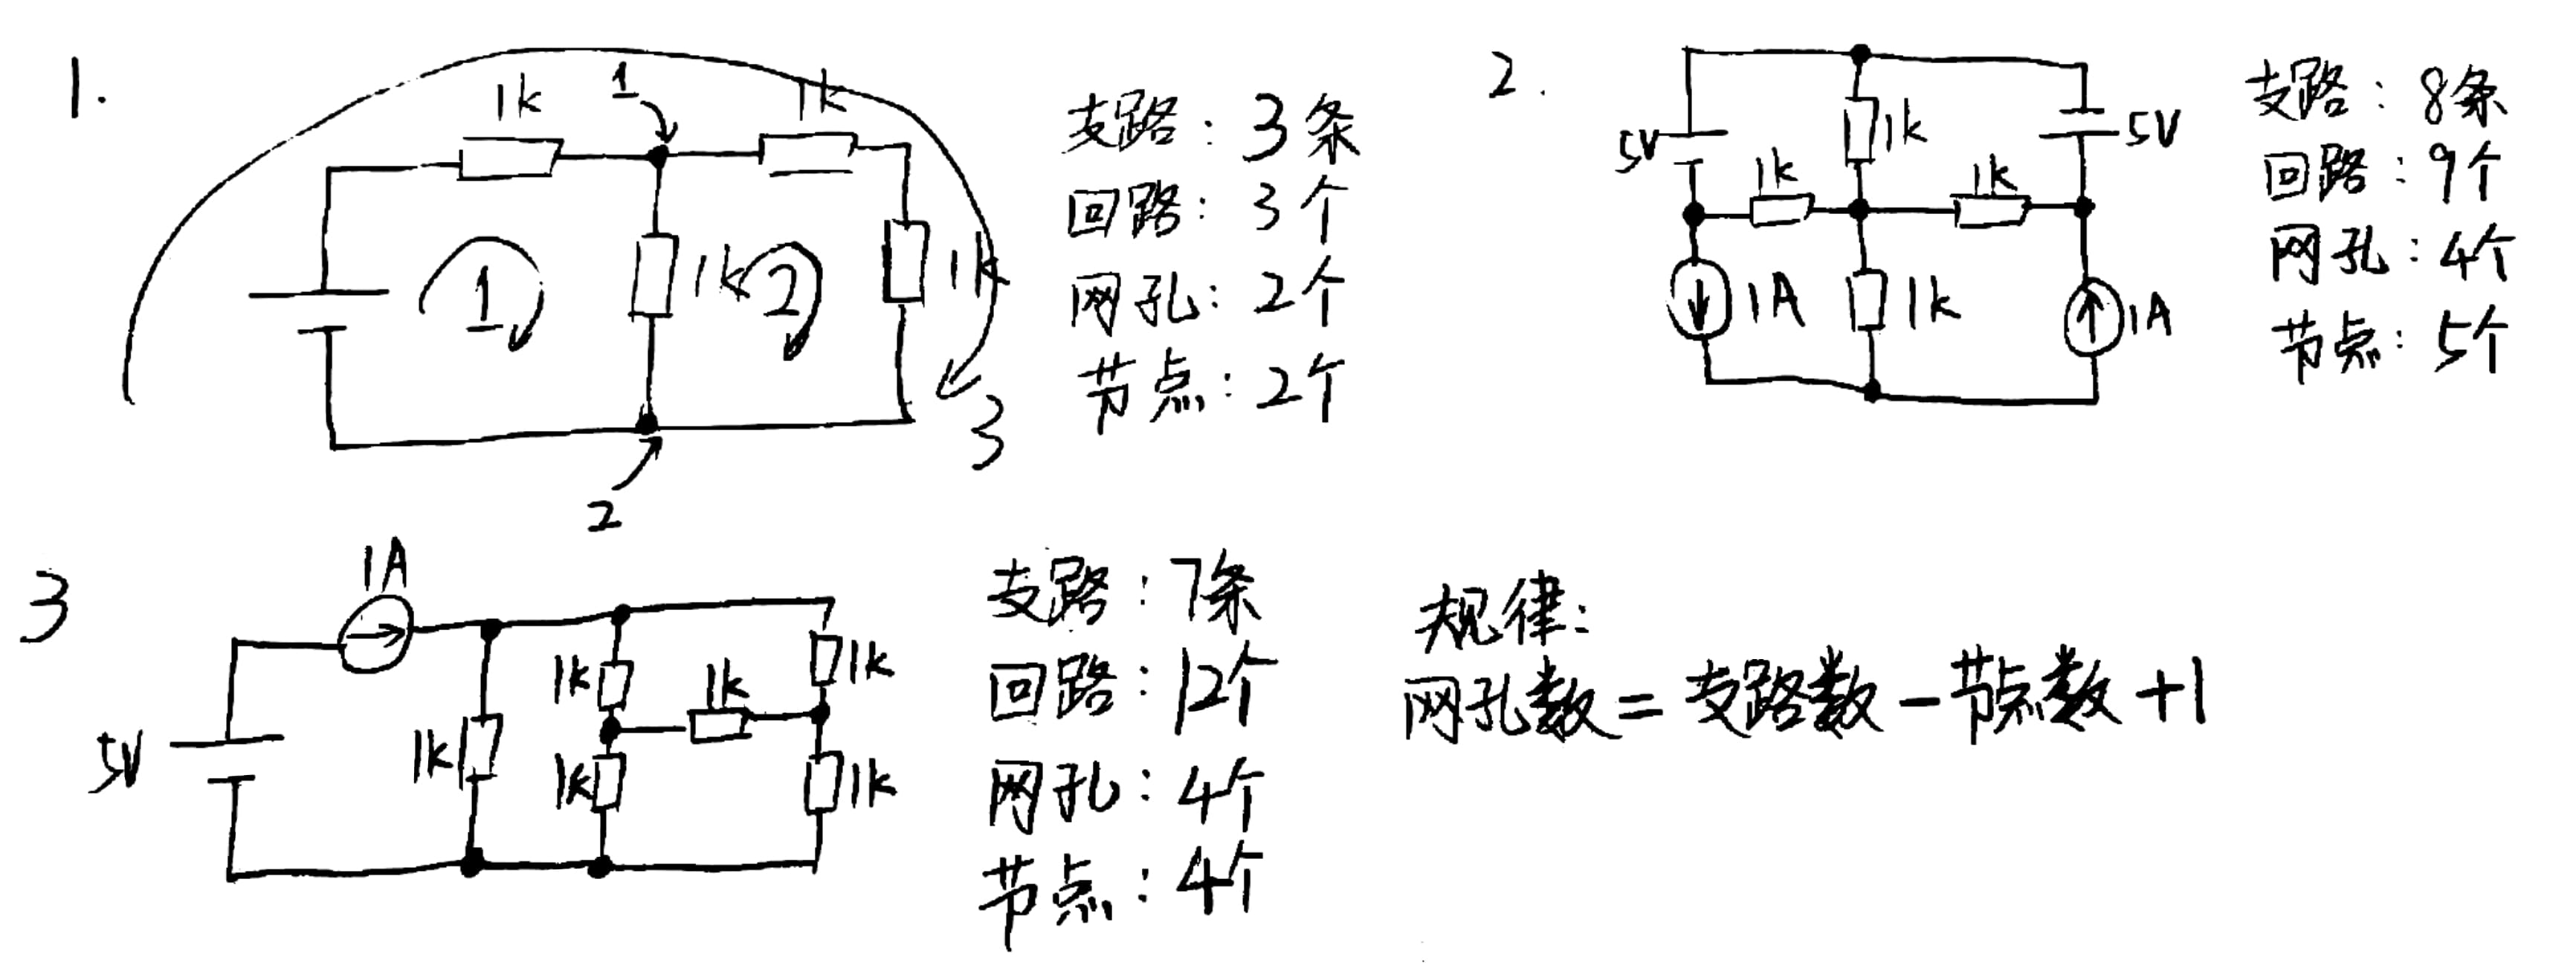 1.
1k
1
1k
1
1k
2
1k
3
2
支路：3条
回路：3个
网孔：2个
节点：2个
2.
5V
1k
5V
1k
1k
1A
1k
1A
支路：8条
回路：9个
网孔：4个
节点：5个
3
1A
5V
1k
1k
1k
1k
1k
1k
支路：7条
回路：12个
网孔：4个
节点：4个
规律：
网孔数＝支路数－节点数＋1